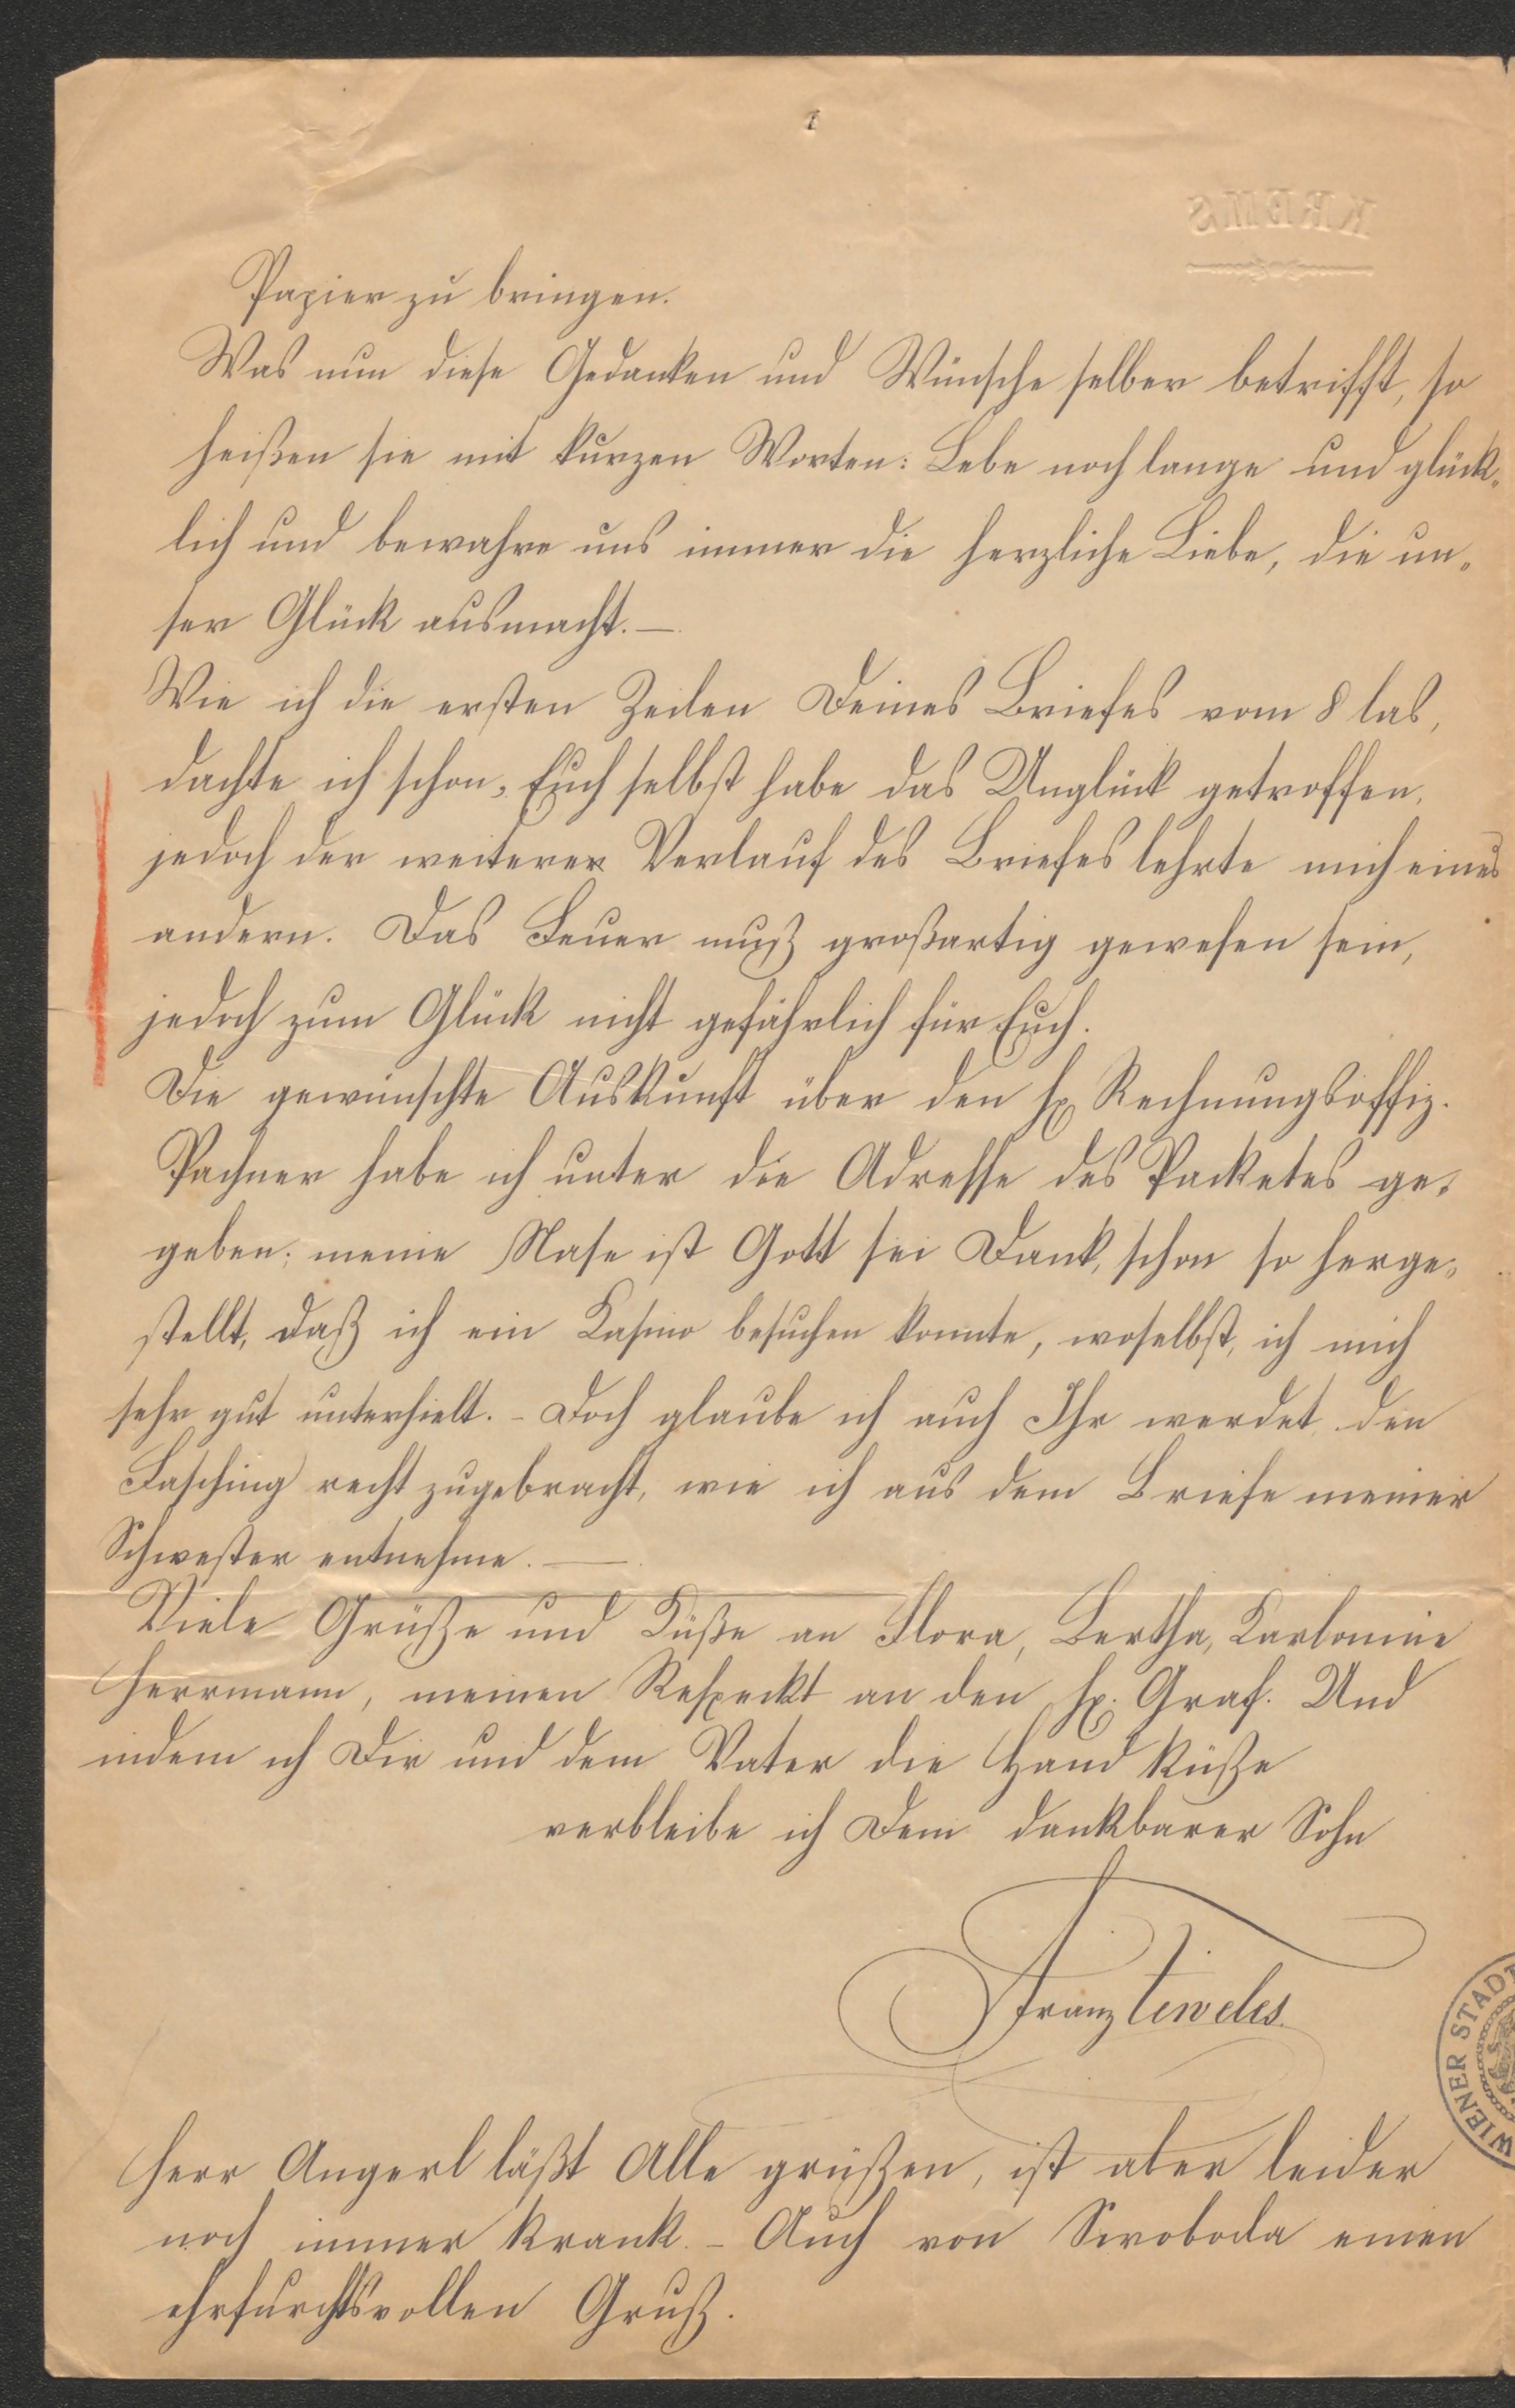 KREMS
Papier zu bringen.
Was nun diese Gedanken und Wünsche selber betrifft, so
heißen sie mit kurzen Worten: Lebe noch lange und glück„
lich und bewahre uns immer die herzliche Liebe, die un„
ser Glück ausmacht. —
Wie ich die ersten Zeilen Deines Briefes vom 8 las,
dachte ich schon, Euch selbst habe das Unglück getroffen,
jedoch der weiterer Verlauf des Briefes lehrte mich eines
andern. Das Feuer muß großartig gewesen sein,
jedoch zum Glück nicht gefährlich für Euch.
Die gewünschte Auskunft über den H. Rechnungsoffiz.
Pachner habe ich unter die Adresse des Packetes ge„
geben; meine Nase ist Gott sei Dank, schon so herge„
stellt, daß ich ein Kasino besuchen konnte, woselbst, ich mich
sehr gut unterhielt. - Doch glaube ich auch Ihr werdet den
Fasching recht zugebracht, wie ich aus dem Briefe meiner
Schwester entnehme. —
Viele Grüße und Küße an Flora, Bertha, Karlomine
Herrmann, meinen Respeckt an den H. Graf. Und
indem ich Dir und dem Vater die Hand küße
verbleibe ich Dein dankbarer Sohn
Franz Teweles.
Herr Angerl läßt Alle grüßen, ist aber leider
noch immer krank. - Auch von Swoboda einen
ehrfurchtsvollen Gruß.
WIENER STADT